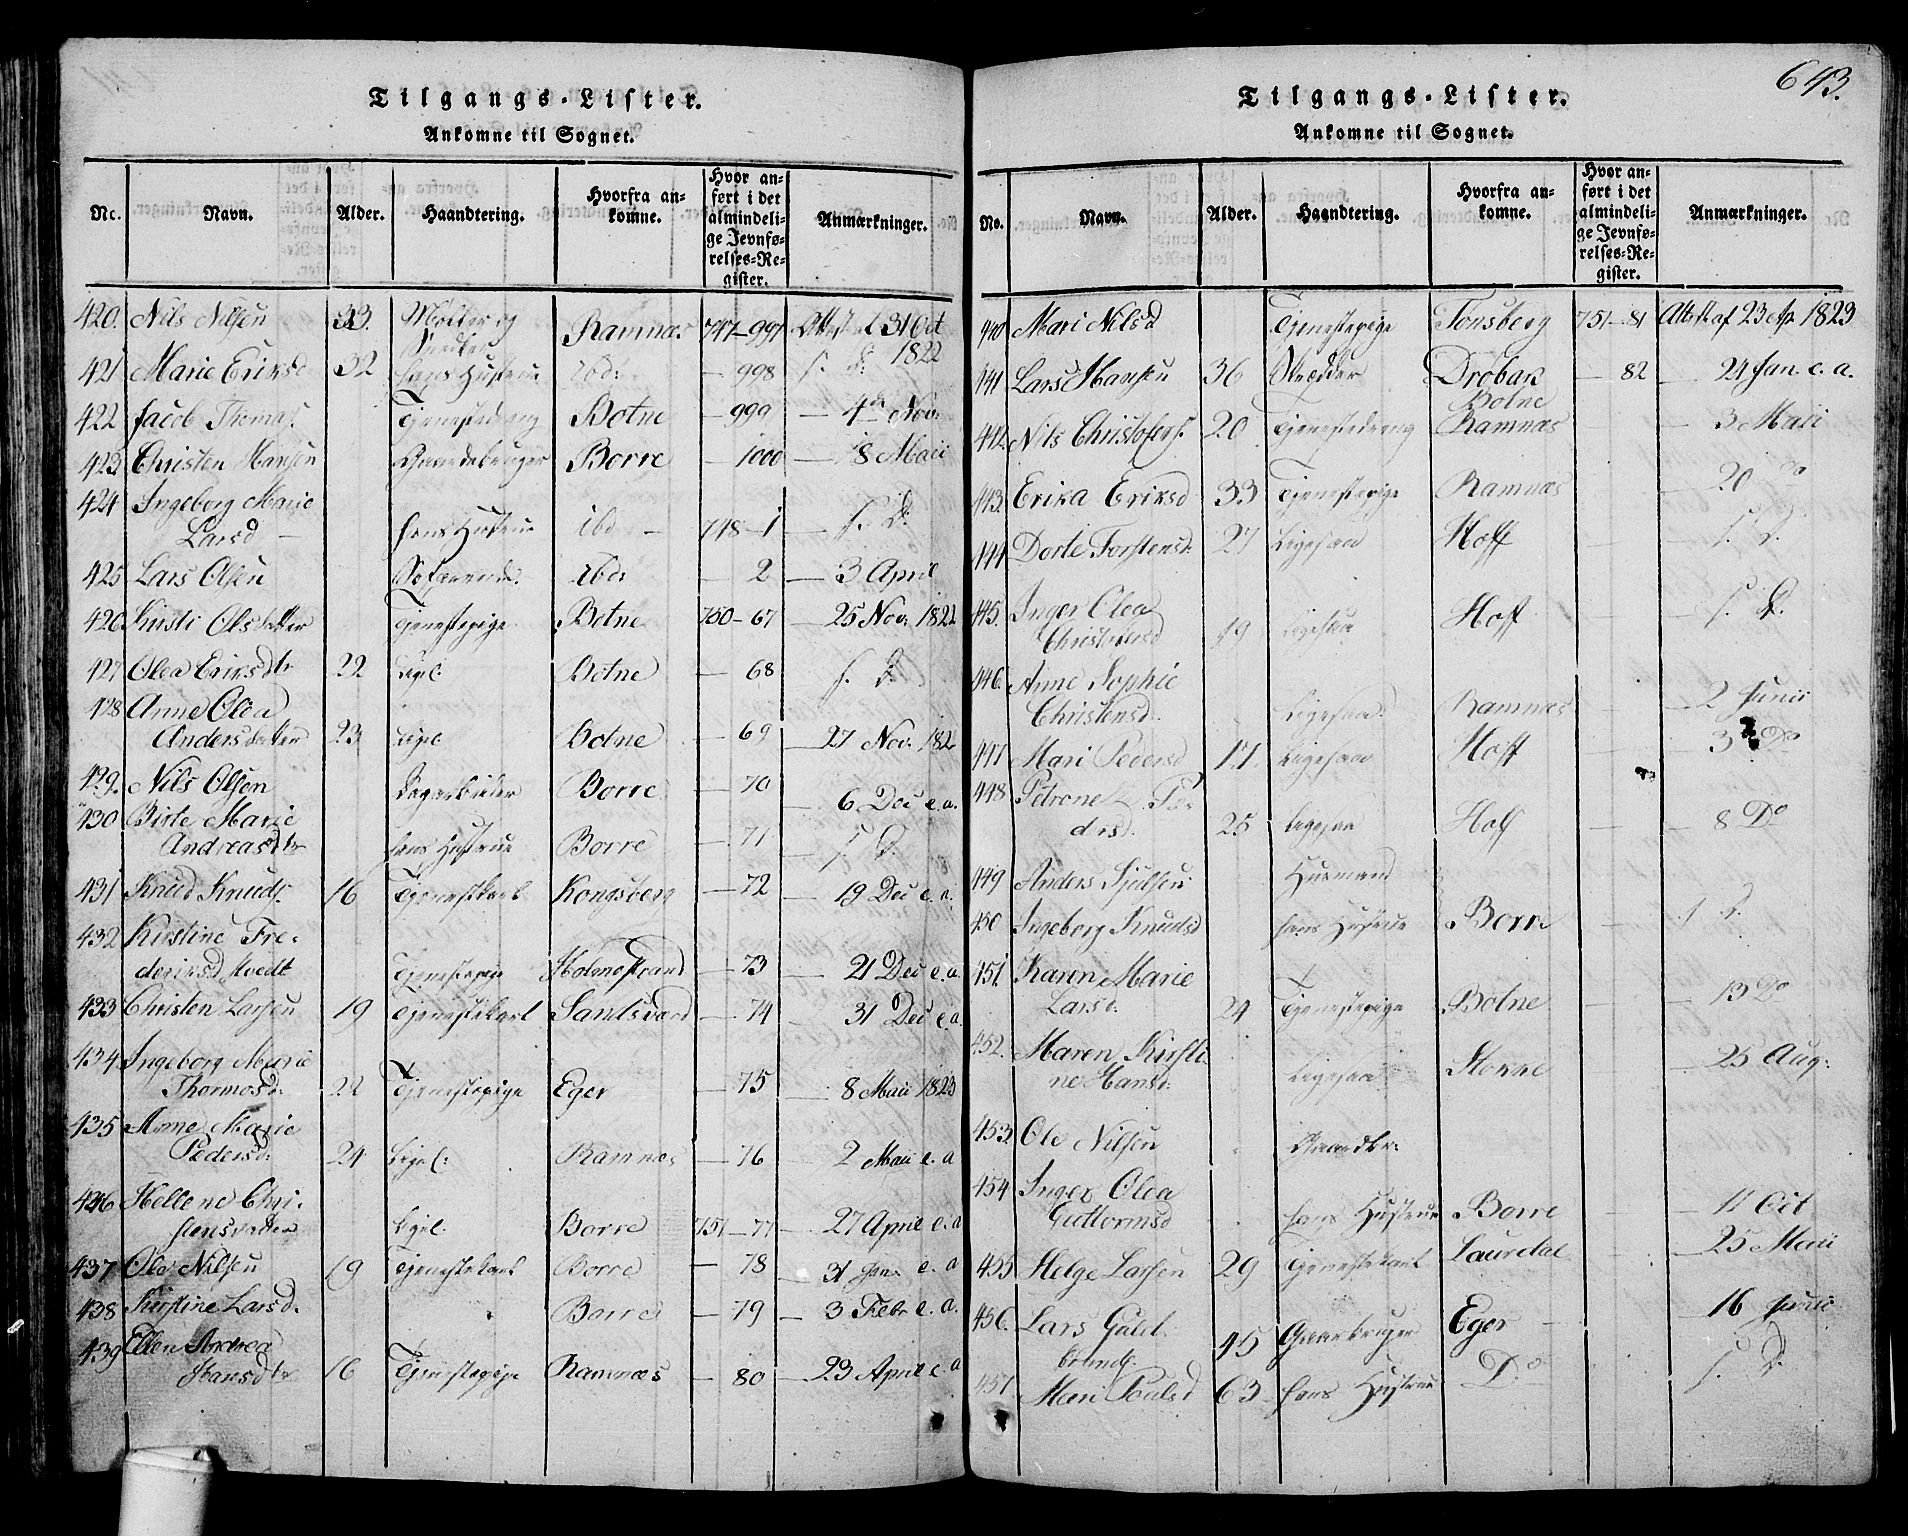 Tilgangs-Lister.
Ankomne til Sognet.
No. Navn. Alder. Haandtering. Hvorfra ankomne. Hvor anført i det almindelige Jevnførelses-Register. Anmærkninger.
420. Nils Nilsen 33. Møller og Ramnæs 747-997 31 Oct 1822
421 Marie Eriksd 32 hans Hustrue ibd: — 998 s. D.
422 Jacob Thomas. Tjenestedreng Botne — 999 — 4de Nov.
423 Christen Hansen Gaardebruger Borre — 1000 — 8 Maii
424 Ingeborg Marie
Larsd — hans Hustrue ibd — 748-1 — s. D.
425 Lars Olsen Søfarende. ibd: — 2 — 3 April
426 Kirsti Olsdatter Tjenestepige Botne 750-67 — 25 Nov. 1822
427 Olea Eriksdtr 22 Ligel: Botne — 68 s. D.
428 Anne Olea
Andersdatter 23 Ligel Botne — 69 — 27 Nov. 182
429. Nils Olsen Dagarbeider Borre — 70 6 Dec e.a.
430 Birte Marie
Andreasdtr hans Hustrue Borre — 71 — s. D.
431 Knud Knuds. 16 Tjenestkarl Kongsberg — 72 — 19 Dec e.a.
432 Kirstine Fre-
deriksd Tjenestepige Holmestrand — 73 — 21 Dec e.a.
433 Christen Larsen 19 Tjenestekarl Sandsværd — 74 — 31 Dec e.a.
434 Ingeborg Marie
Thormosd: 22 Tjenestepige Eger — 75 — 8 Maii 1823
435 Anne Marie
Pedersd: 24 Ligel: Ramnæs — 76 — 2 Maii e.a
436 Hellene Chri-
stensdatter Ligel. Borre 751-77 — 27 April e.a
437 Ole Nilsen 19 Tjenestekarl Borre — 78 — 31 Jan. e.a
438 Kirstine Larsd. Borre — 79 — 3 Febr e.a.
439 Ellen Andrea
Hansdtr 16 Tjenestepige Ramnæs — 80 — 23 April e.a
643.
Tilgangs-Lister.
Ankomne til Sognet.
No. Navn. Alder. Haandtering. Hvorfra ankomne. Hvor anført i det almindelige Jevnførelses-Register. Anmærkninger.
440 Mari Nilsd Tjenestepige Tønsberg 751-81 Attest af 23 Ap. 1823
441 Lars Hansen 36 Drøbak — 82 — 24 Jan. e.a.
Botne
442. Nils Christofers. 20 Tjenestedreng Ramnæs — 3 Maii
443. Erika Eriksd 33 Tjenestepige Ramnæs — 20 Do
444 Dorte Torstensd. 27 Ligesaa Hoff — s. D.
445. Inger Olea
Christofersd 19 Ligesaa Hoff — s. D.
446. Anne Sophie
Christensd. Ligesaa Ramnæs — 2 Junii
447 Mari Pedersd 17. Ligesaa Hoff 3 Do
448 Petrone Pe-
dersd. 25 Ligesaa Hoff — 8 Do
449 Anders Husmand
450 Ingeborg Knudsd hans Hustrue Borre s. D.
451. Karen Marie
Larsd. 24 Tjenestepige Botne — 13 Do
452. Maren Kirsti-
ne Hansd: Ligesaa Stokke — 25 Aug:
453. Ole Nilsen Gaardbr:
454 Inger Olea
Guttormsd hans Hustrue Borre — 11 Oct
455 Helge Larsen 29 Tjenestekarl Laurdal — 25 Maii
456. Lars Guld-
brands. 45 Gaardbruger Eger — 16 Junii
457 Mari Poulsd 63 hans Hustrue Do s. D.